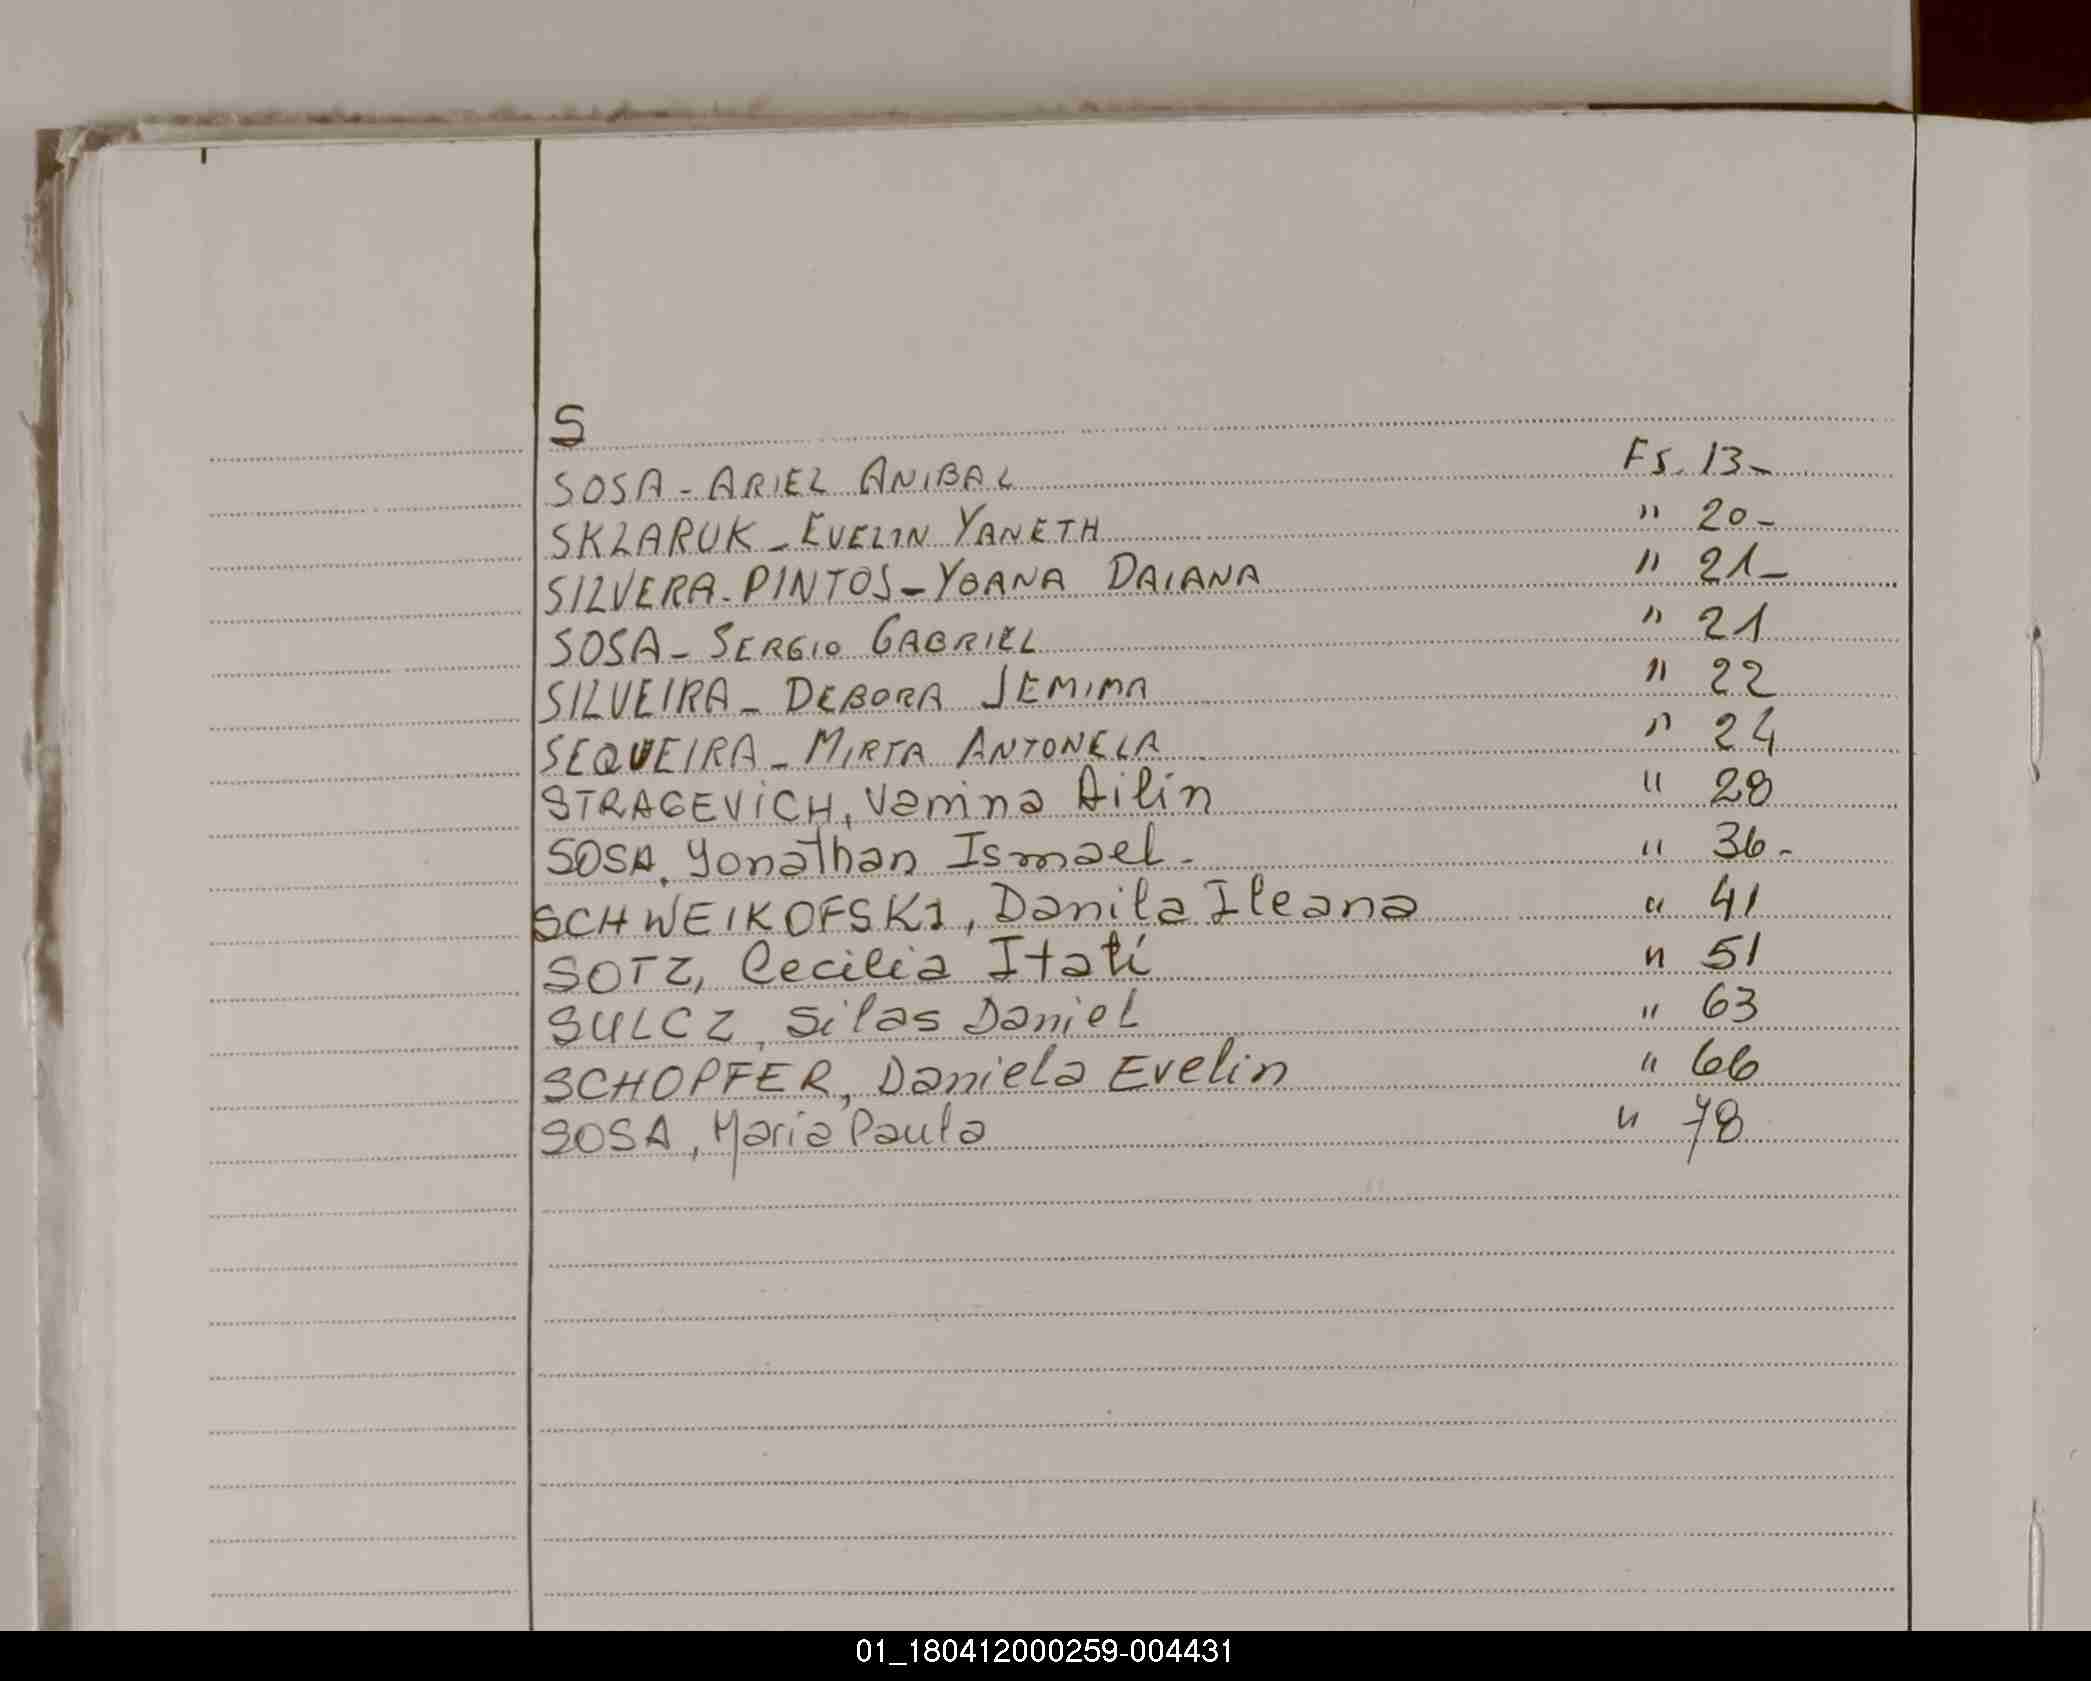 S
SOSA - ARIEL ANIBAL Fs. 13-
SKLARUK - EVELIN YANETH " 20-
SILVERA - PINTOS - YOANA DAIANA " 21-
SOSA - SERGIO GABRIEL " 21
SILVEIRA - DEBORA JEMIMA " 22
SEQUEIRA - MIRTA ANTONELA " 24
STRAGEVICH, Vanina Ailin " 28
SOSA, Yonathan Ismael - " 36-
SCHWEIKOFSKI, Danila Ileana " 41
SOTZ, Cecilia Itatí " 51
SULCZ, Silas Daniel " 63
SCHOPFER, Daniela Evelin " 66
SOSA, Maria Paula " 78
01_180412000259-004431